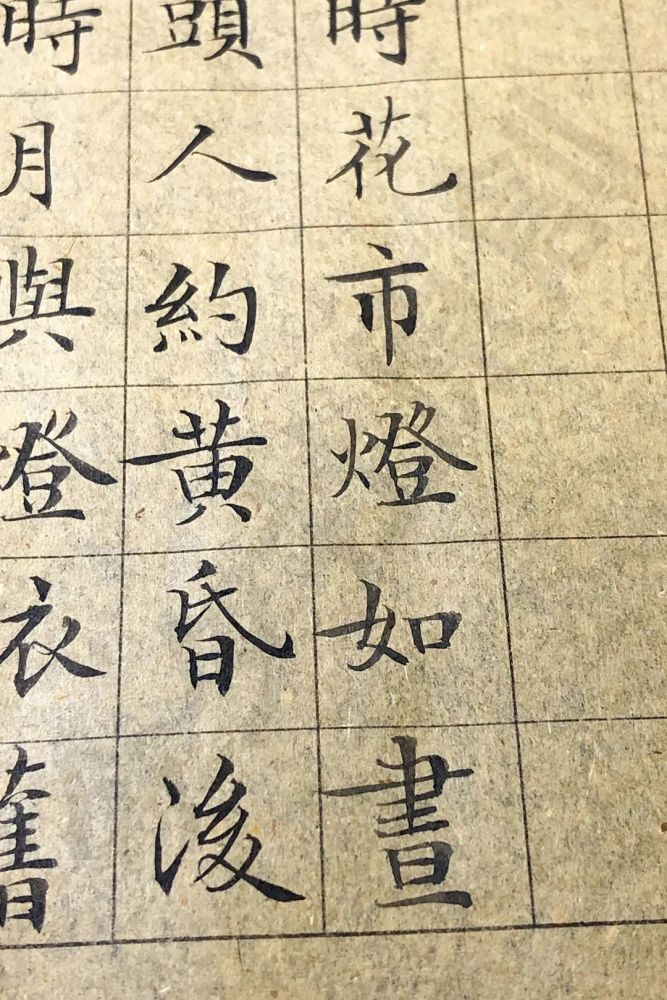 時花市燈如晝
頭人約黄昏後
時月與燈依舊